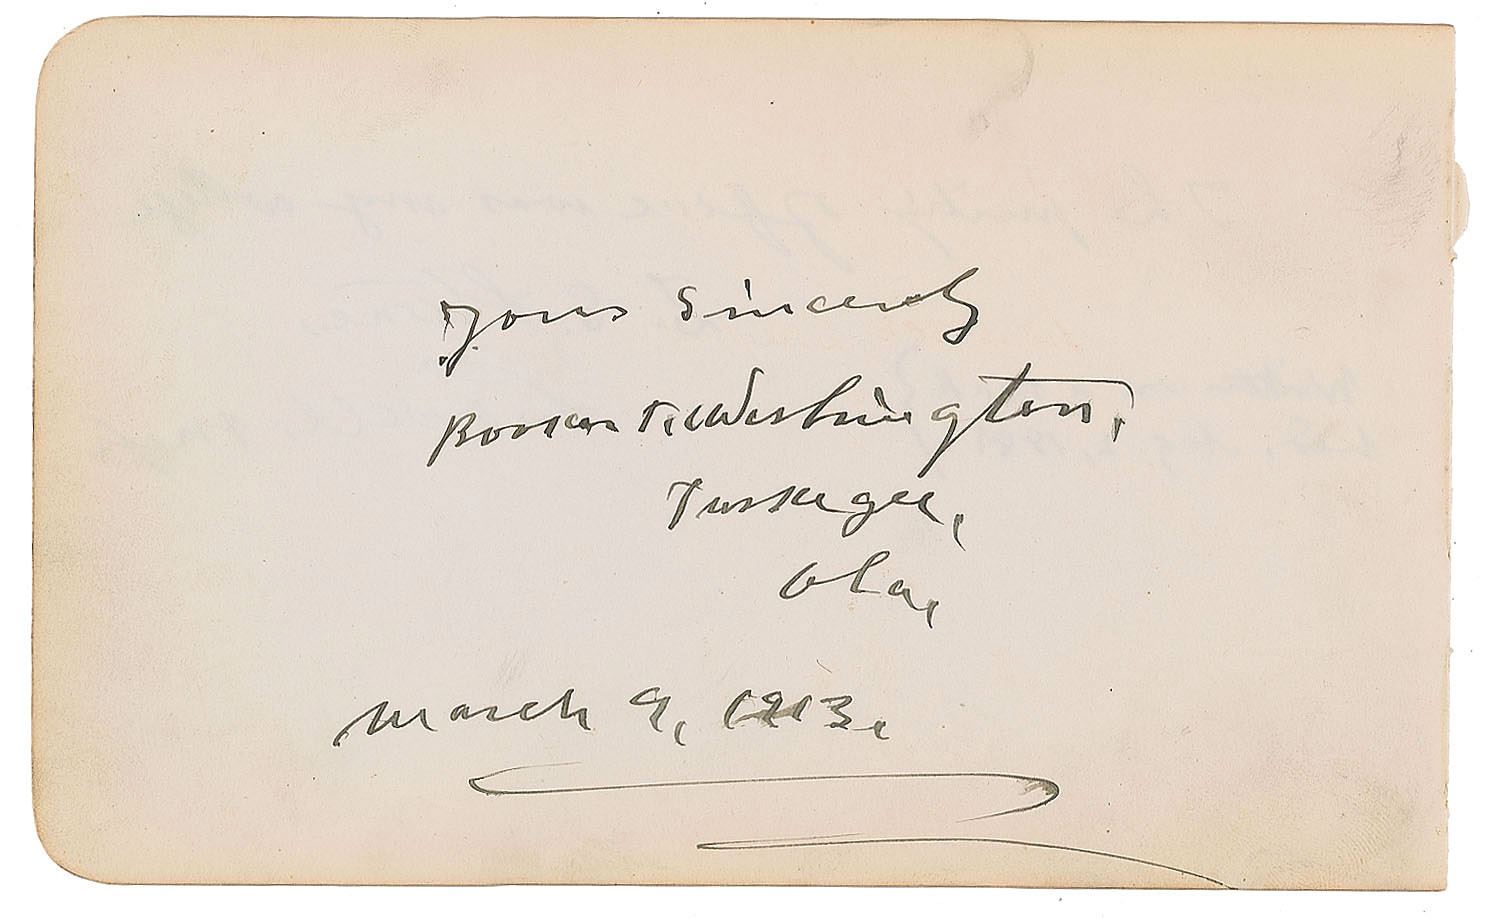 Yours Sincerely
Booker T. Washington,
Tuskegee,
Ala,
March 9, 1913.